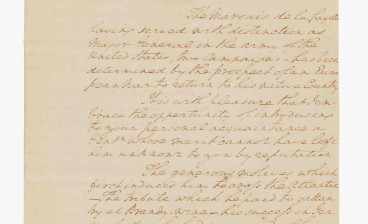 The Marquis de la Fayette
having served with distinction as
Major General in the army of the
United States two campaigns – has been
determined by the prospect of an Euro
pean War to return to his native Country
It is with pleasure that I em-
brace the opportunity of introducing
to your personal acquaintance a
Gentn whose merit cannot have left
him unknown to you by reputation
The generous motives which
first induced him to cross the Atlantic
– The tribute which he paid to gallan
try at Brandywine – his success in Jer